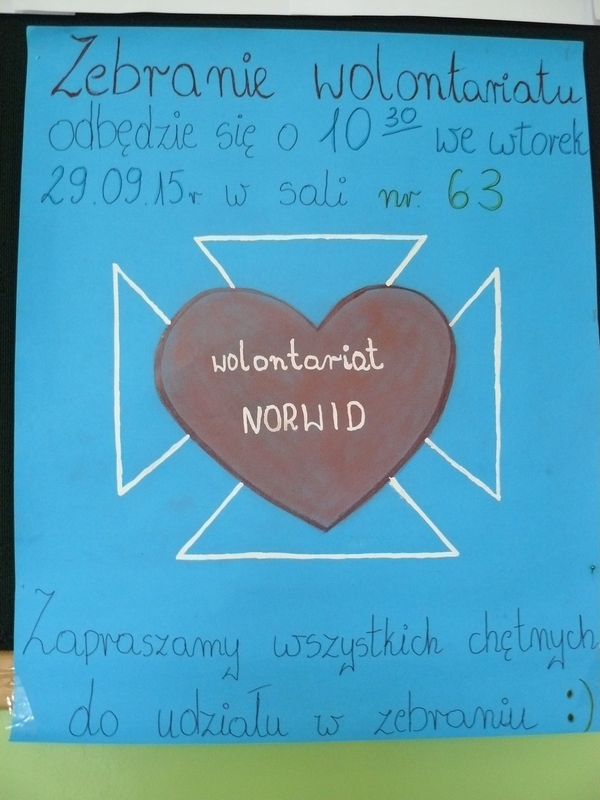 Zebranie wolontariatu
odbędzie się o 10 30 we wtorek
29.09.15r w sali nr. 63
wolontariat
NORWID
Zapraszamy wszystkich chętnych
do udziału w zebraniu :)